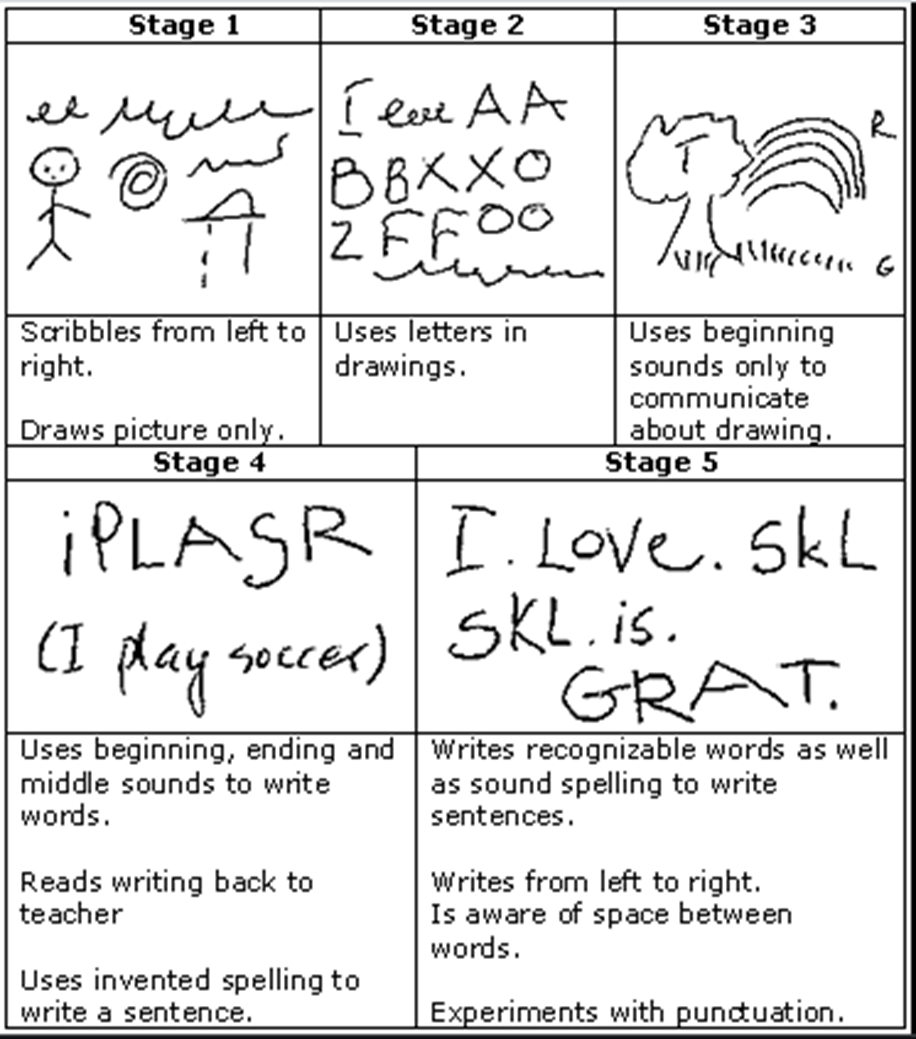 Stage 1
Stage 2
Stage 3
I AA
BBXXO
ZFFOO
T
R
G
Scribbles from left to
right.
Draws picture only.
Uses letters in
drawings.
Uses beginning
sounds only to
communicate
about drawing.
Stage 4
Stage 5
iPLASR
(I play soccer)
I. Love. SkL
SKL. is.
GRAT.
Uses beginning, ending and
middle sounds to write
words.
Reads writing back to
teacher
Uses invented spelling to
write a sentence.
Writes recognizable words as well
as sound spelling to write
sentences.
Writes from left to right.
Is aware of space between
words.
Experiments with punctuation.